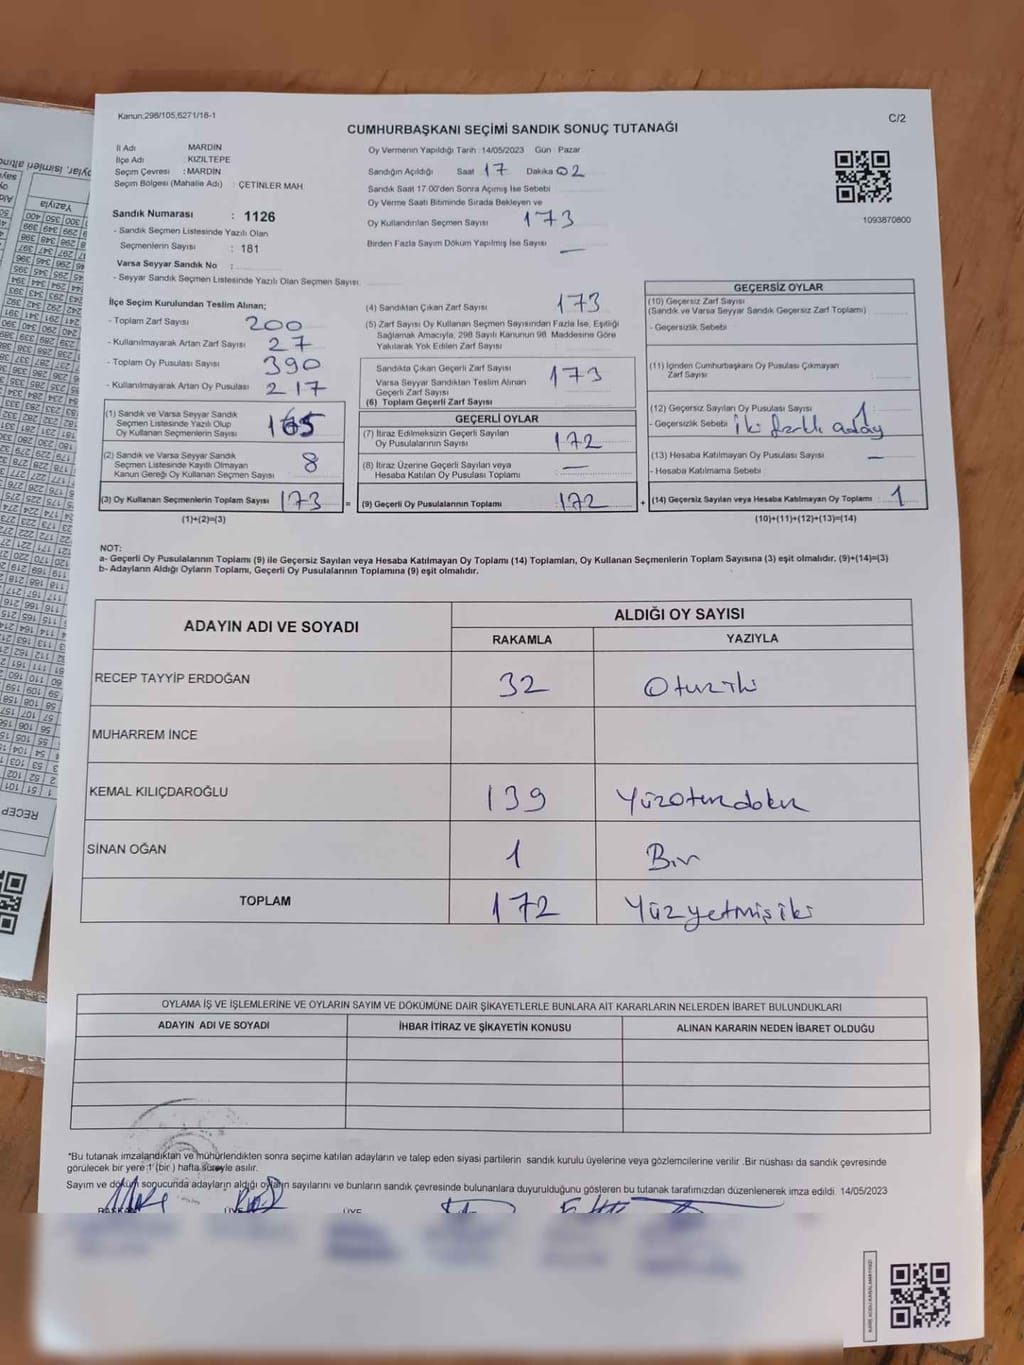 Kanun,298/105,6271/16-1
C/2
CUMHURBAŞKANI SEÇİMİ SANDIK SONUÇ TUTANAĞI
İl Adı MARDİN
İlçe Adı KIZILTEPE
Seçim Çevresi : MARDİN
Seçim Bölgesi (Mahalle Adı) : ÇETİNLER MAH.
Sandık Numarası : 1126
- Sandık Seçmen Listesinde Yazılı Olan
Seçmenlerin Sayısı : 181
Varsa Seyyar Sandık No :
- Seyyar Sandık Seçmen Listesinde Yazılı Olan Seçmen Sayısı:
Oy Vermenin Yapıldığı Tarih : 14/05/2023 Gün : Pazar
Sandığın Açıldığı Saat 17 Dakika 02
Sandık Saat 17:00'den Sonra Açılmış İse Sebebi
Oy Verme Saati Bitiminde Sırada Bekleyen ve
Oy Kullandırılan Seçmen Sayısı 173
Birden Fazla Sayım Döküm Yapılmış İse Sayısı —
1093870800
İlçe Seçim Kurulundan Teslim Alınan;
- Toplam Zarf Sayısı 200
- Kullanılmayarak Artan Zarf Sayısı 27
- Toplam Oy Pusulası Sayısı 390
- Kullanılmayarak Artan Oy Pusulası 217
(1) Sandık ve Varsa Seyyar Sandık
Seçmen Listesinde Yazılı Olup
Oy Kullanan Seçmenlerin Sayısı 165
(2) Sandık ve Varsa Seyyar Sandık
Seçmen Listesinde Kayıtlı Olmayan
Kanun Gereği Oy Kullanan Seçmen Sayısı 8
(3) Oy Kullanan Seçmenlerin Toplam Sayısı 173 =
(1)+(2)=(3)
(4) Sandıktan Çıkan Zarf Sayısı 173
(5) Zarf Sayısı Oy Kullanan Seçmen Sayısından Fazla İse, Eşitliği
Sağlamak Amacıyla, 298 Sayılı Kanunun 98. Maddesine Göre
Yakılarak Yok Edilen Zarf Sayısı
Sandıkta Çıkan Geçerli Zarf Sayısı 173
Varsa Seyyar Sandıktan Teslim Alınan
Geçerli Zarf Sayısı
(6) Toplam Geçerli Zarf Sayısı
GEÇERLİ OYLAR
(7) İtiraz Edilmeksizin Geçerli Sayılan
Oy Pusulalarının Sayısı 172
(8) İtiraz Üzerine Geçerli Sayılan veya
Hesaba Katılan Oy Pusulaları Toplamı —
(9) Geçerli Oy Pusulalarının Toplamı 172 +
GEÇERSİZ OYLAR
(10) Geçersiz Zarf Sayısı
(Sandık ve Varsa Seyyar Sandık Geçersiz Zarf Toplamı)
- Geçersizlik Sebebi
(11) İçinden Cumhurbaşkanı Oy Pusulası Çıkmayan
Zarf Sayısı
(12) Geçersiz Sayılan Oy Pusulası Sayısı : 1
- Geçersizlik Sebebi : iki farklı aday
(13) Hesaba Katılmayan Oy Pusulası Sayısı : —
- Hesaba Katılmama Sebebi
(14) Geçersiz Sayılan veya Hesaba Katılmayan Oy Toplamı : 1
(10)+(11)+(12)+(13)=(14)
NOT:
a- Geçerli Oy Pusulalarının Toplamı (9) ile Geçersiz Sayılan veya Hesaba Katılmayan Oy Toplamı (14) Toplamları, Oy Kullanan Seçmenlerin Toplam Sayısına (3) eşit olmalıdır. (9)+(14)=(3)
b- Adayların Aldığı Oyların Toplamı, Geçerli Oy Pusulalarının Toplamına (9) eşit olmalıdır.
ADAYIN ADI VE SOYADI ALDIĞI OY SAYISI
RAKAMLA YAZIYLA
RECEP TAYYİP ERDOĞAN 32 Otuziki
MUHARREM İNCE
KEMAL KILIÇDAROĞLU 139 Yüzotuzdokuz
SİNAN OĞAN 1 Bir
TOPLAM 172 Yüzyetmişiki
OYLAMA İŞ VE İŞLEMLERİNE VE OYLARIN SAYIM VE DÖKÜMÜNE DAİR ŞİKAYETLERLE BUNLARA AİT KARARLARIN NELERDEN İBARET BULUNDUKLARI
ADAYIN ADI VE SOYADI İHBAR İTİRAZ VE ŞİKAYETİN KONUSU ALINAN KARARIN NEDEN İBARET OLDUĞU
*Bu tutanak imzalandıktan ve mühürlendikten sonra seçime katılan adayların ve talep eden siyasi partilerin sandık kurulu üyelerine veya gözlemcilerine verilir .Bir nüshası da sandık çevresinde
görülecek bir yere 1 (bir ) hafta süreyle asılır.
Sayım ve döküm sonucunda adayların aldığı oyların sayılarını ve bunların sandık çevresinde bulunanlara duyurulduğunu gösteren bu tutanak tarafımızdan düzenlenerek imza edildi. 14/05/2023
BAŞKAN ÜYE ÜYE
RECEP